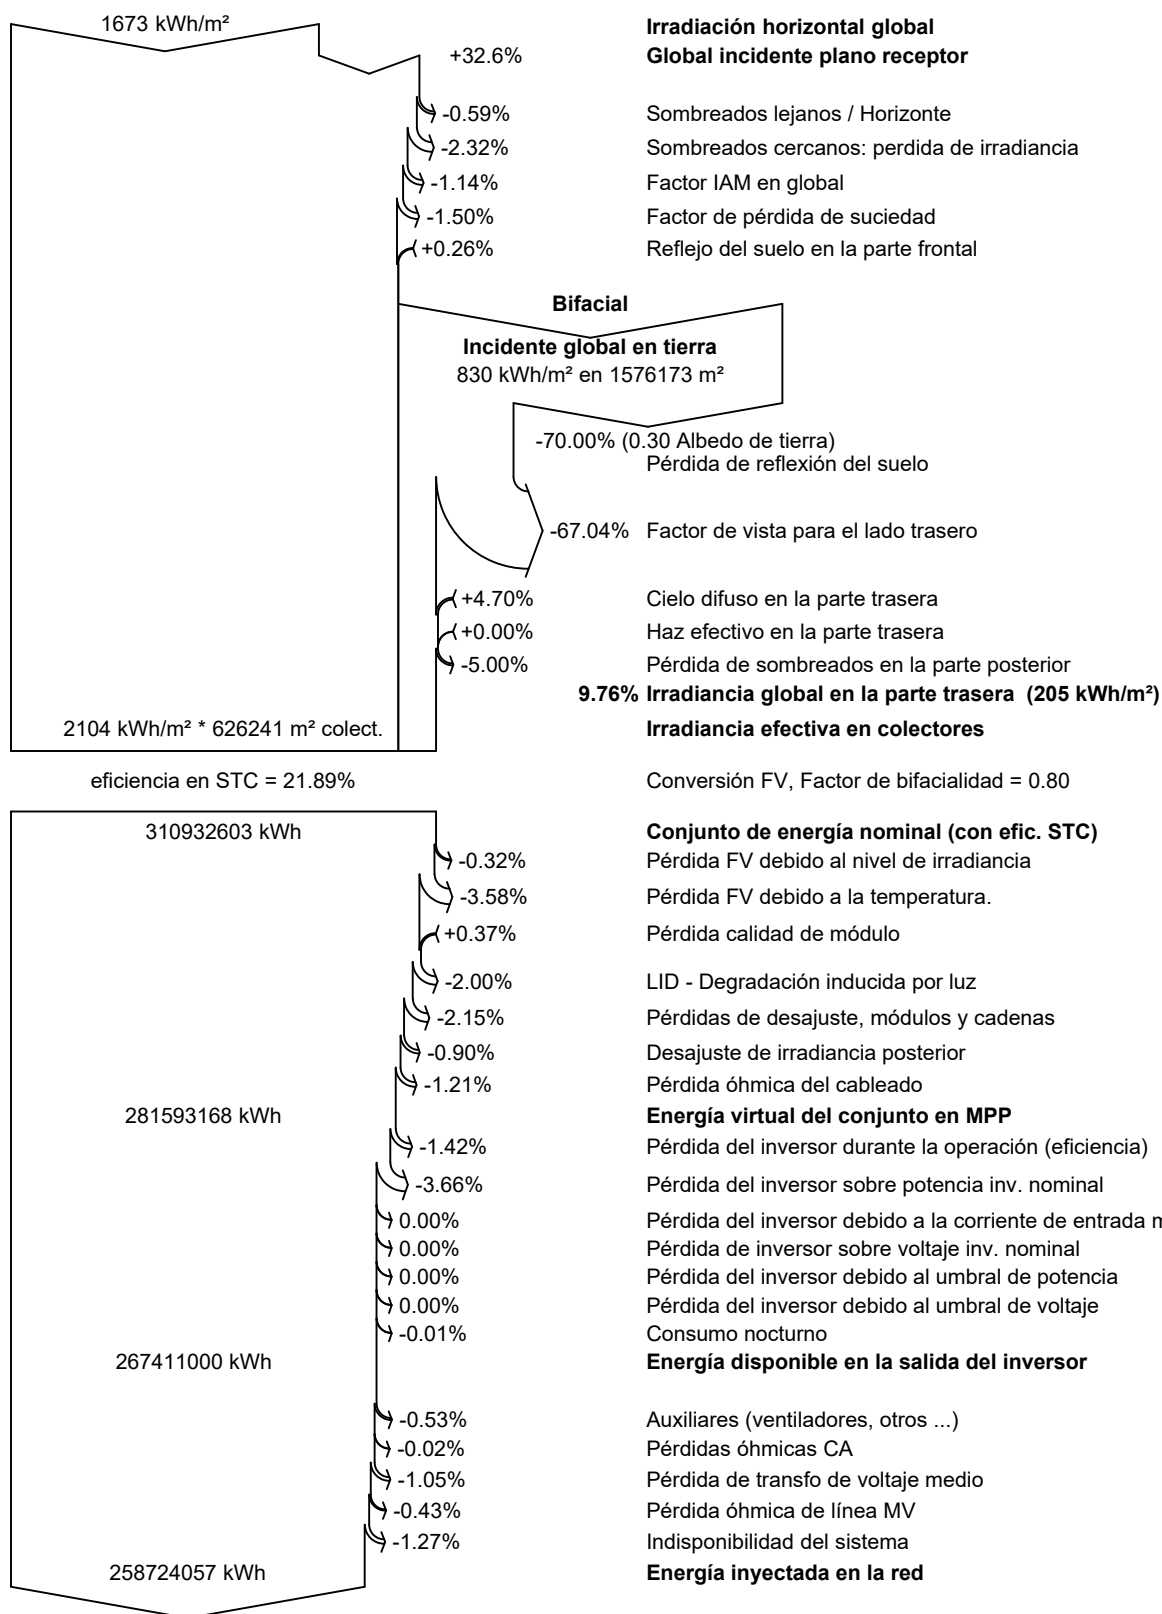 1673 kWh/m² Irradiación horizontal global
+32.6% Global incidente plano receptor
-0.59% Sombreados lejanos / Horizonte
-2.32% Sombreados cercanos: perdida de irradiancia
-1.14% Factor IAM en global
-1.50% Factor de pérdida de suciedad
+0.26% Reflejo del suelo en la parte frontal
Bifacial
Incidente global en tierra
830 kWh/m² en 1576173 m²
-70.00% (0.30 Albedo de tierra)
Pérdida de reflexión del suelo
-67.04% Factor de vista para el lado trasero
+4.70% Cielo difuso en la parte trasera
+0.00% Haz efectivo en la parte trasera
-5.00% Pérdida de sombreados en la parte posterior
9.76% Irradiancia global en la parte trasera (205 kWh/m²)
2104 kWh/m² * 626241 m² colect. Irradiancia efectiva en colectores
eficiencia en STC = 21.89% Conversión FV, Factor de bifacialidad = 0.80
310932603 kWh Conjunto de energía nominal (con efic. STC)
-0.32% Pérdida FV debido al nivel de irradiancia
-3.58% Pérdida FV debido a la temperatura.
+0.37% Pérdida calidad de módulo
-2.00% LID - Degradación inducida por luz
-2.15% Pérdidas de desajuste, módulos y cadenas
-0.90% Desajuste de irradiancia posterior
-1.21% Pérdida óhmica del cableado
281593168 kWh Energía virtual del conjunto en MPP
-1.42% Pérdida del inversor durante la operación (eficiencia)
-3.66% Pérdida del inversor sobre potencia inv. nominal
0.00% Pérdida del inversor debido a la corriente de entrada
0.00% Pérdida de inversor sobre voltaje inv. nominal
0.00% Pérdida del inversor debido al umbral de potencia
0.00% Pérdida del inversor debido al umbral de voltaje
-0.01% Consumo nocturno
267411000 kWh Energía disponible en la salida del inversor
-0.53% Auxiliares (ventiladores, otros ...)
-0.02% Pérdidas óhmicas CA
-1.05% Pérdida de transfo de voltaje medio
-0.43% Pérdida óhmica de línea MV
-1.27% Indisponibilidad del sistema
258724057 kWh Energía inyectada en la red